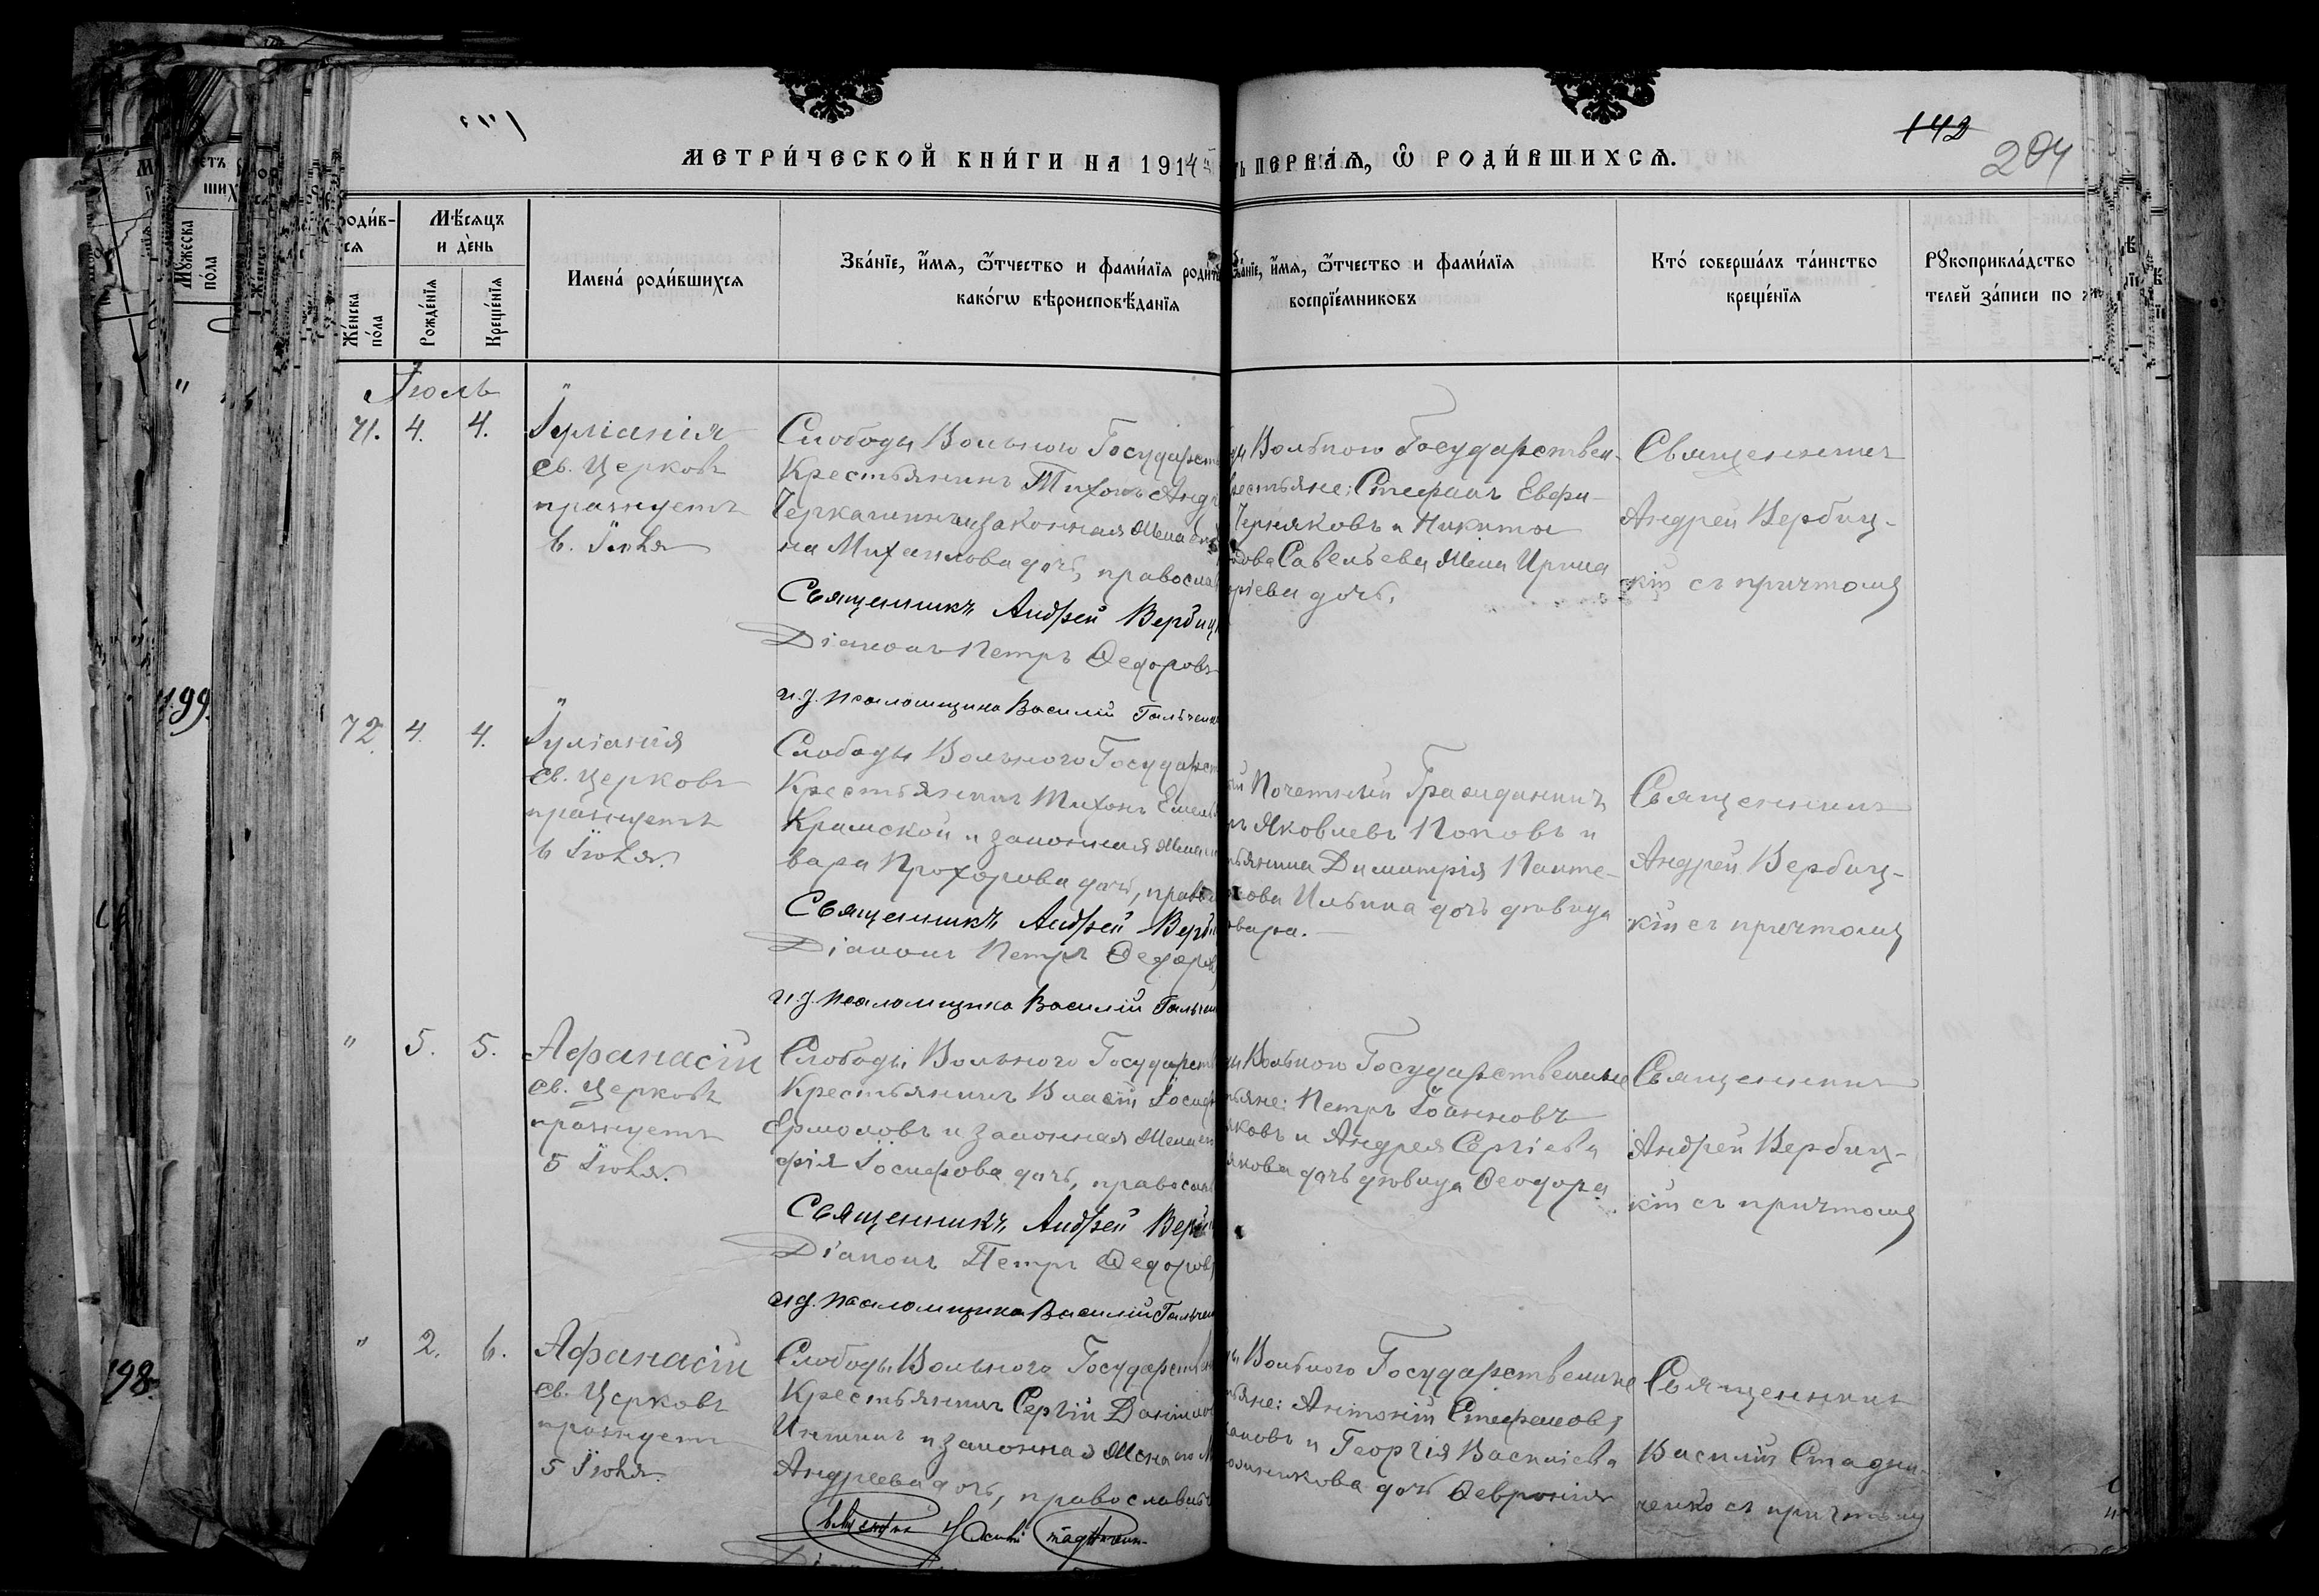 142
204
МЕТРИ́ЧЕСКОЙ КНИ́ГИ НА 1914
ПЕРВАѦ, Ѿ РОДИ́ВШИХСѦ.
роди́в-
сѧ
Же́нска
по́ла
Мѣ́сѧцъ
и де́нь
Рожде́нїѧ
Креще́нїѧ
Имена́ роди́вшихсѧ
Зва́нїе, и́мѧ, ѻ́тчество и фами́лїѧ роди́
како́гѡ вѣроисповѣ́данїѧ
и́мѧ, ѻ́тчество и фами́лїѧ
воспрїе́мниковъ
Кто̀ соверша́лъ та́инство
креще́нїѧ
Рꙋкоприкла́дство
телей за́писи по
Іюль
71. 4. 4.
Іуліанія
Св. Церковь
празнуетъ
6. Іюля
Слободы Вольного Государст
Крестьянинъ Тихонъ Андр
законная жена
на Михаилова дочь, православ
Священникъ Андрей Вербиц
Діаконъ Петръ Ѳедоровъ
и.д. псаломщика Василій Гальченк
Вольного Государствен-
рестьяне: Стефанъ Евфи-
Черняковъ и Никиты
Савельева жена Ирина
дочь.
Священникъ
Андрей Вербиц-
кій съ причтомъ
72. 4. 4.
Іуліанія
Св. Церковь
празнуетъ
6 Іюля.
Слободы Вольного Государст
Крестьянинъ Тихонъ Емель
Крамской и законная жена
вара Прохорова дочь, право
Священникъ Андрей Верб
Діаконъ Петръ Ѳедоров
и.д. псаломщика Василій Гальчен
Почетный Гражданинъ
Яковлевъ Поповъ и
Димитрія Панте-
Ильина дочь девица
вара.
Священникъ
Андрей Вербиц-
кій съ причтомъ
" 5. 5.
Афанасій
Св. Церковь
празнуетъ
5 Іюля.
Слободы Вольного Государст
Крестьянинъ Власій Іосиф
Ермоловъ и законная жена
фія Іосифова дочь, православ
Священникъ Андрей Верб
Діаконъ Петръ Ѳедоров
и.д. псаломщика Василій Гальчен
Вольного Государственные
тьяне: Петръ Іоанновъ
ковъ и Андрея Сергіева
якова дочь девица Ѳеодора
Священникъ
Андрей Вербиц-
кій съ причтомъ
" 2. 6.
Афанасій
Св. Церковь
празнуетъ
5 Іюля.
Слободы Вольного Государств
Крестьянинъ Сергій Данилов
и законная жена его
Андреева дочь, православн
Вольного Государственные
тьяне: Антоній Стефановъ
и Георгія Васильева
дочь Ѳевронія
Священникъ
Василій Стадни-
ченко съ причтомъ
199.
198.